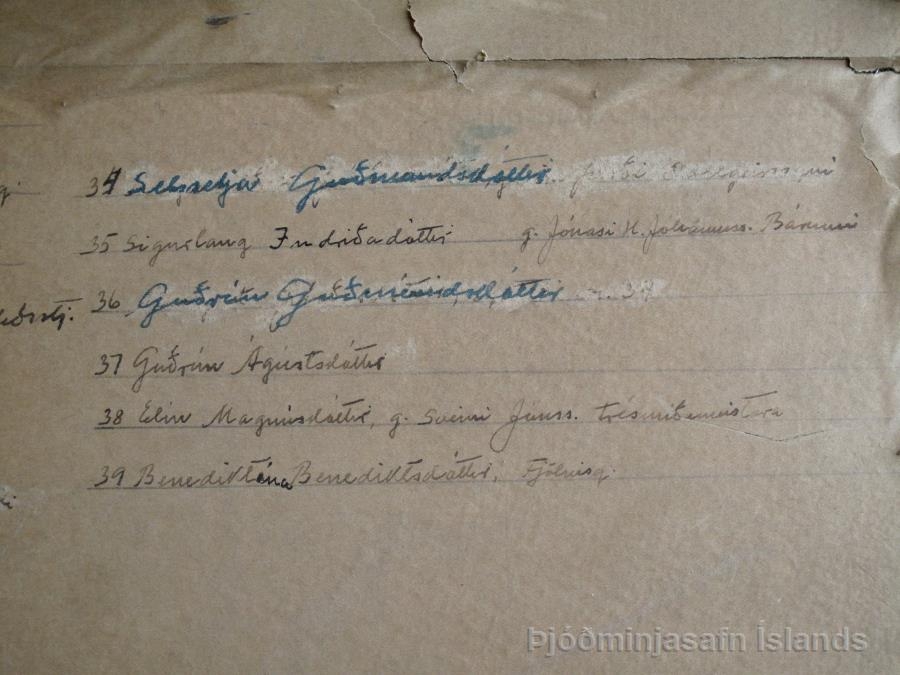 34 Sesselja Guðmundsdóttir
35 Sigurlaug Indriðadóttir g. Jónasi H. Báruni
36 Guðrún Guðmundsdóttir 34
37 Guðrún Ágústsdóttir
38 Elín Magnúsdóttir, g. Sveini Jónss. trésmíðameistara
39 Benediktína Benediktsdóttir, Fjölnisg.
Þjóðminjasafn Íslands